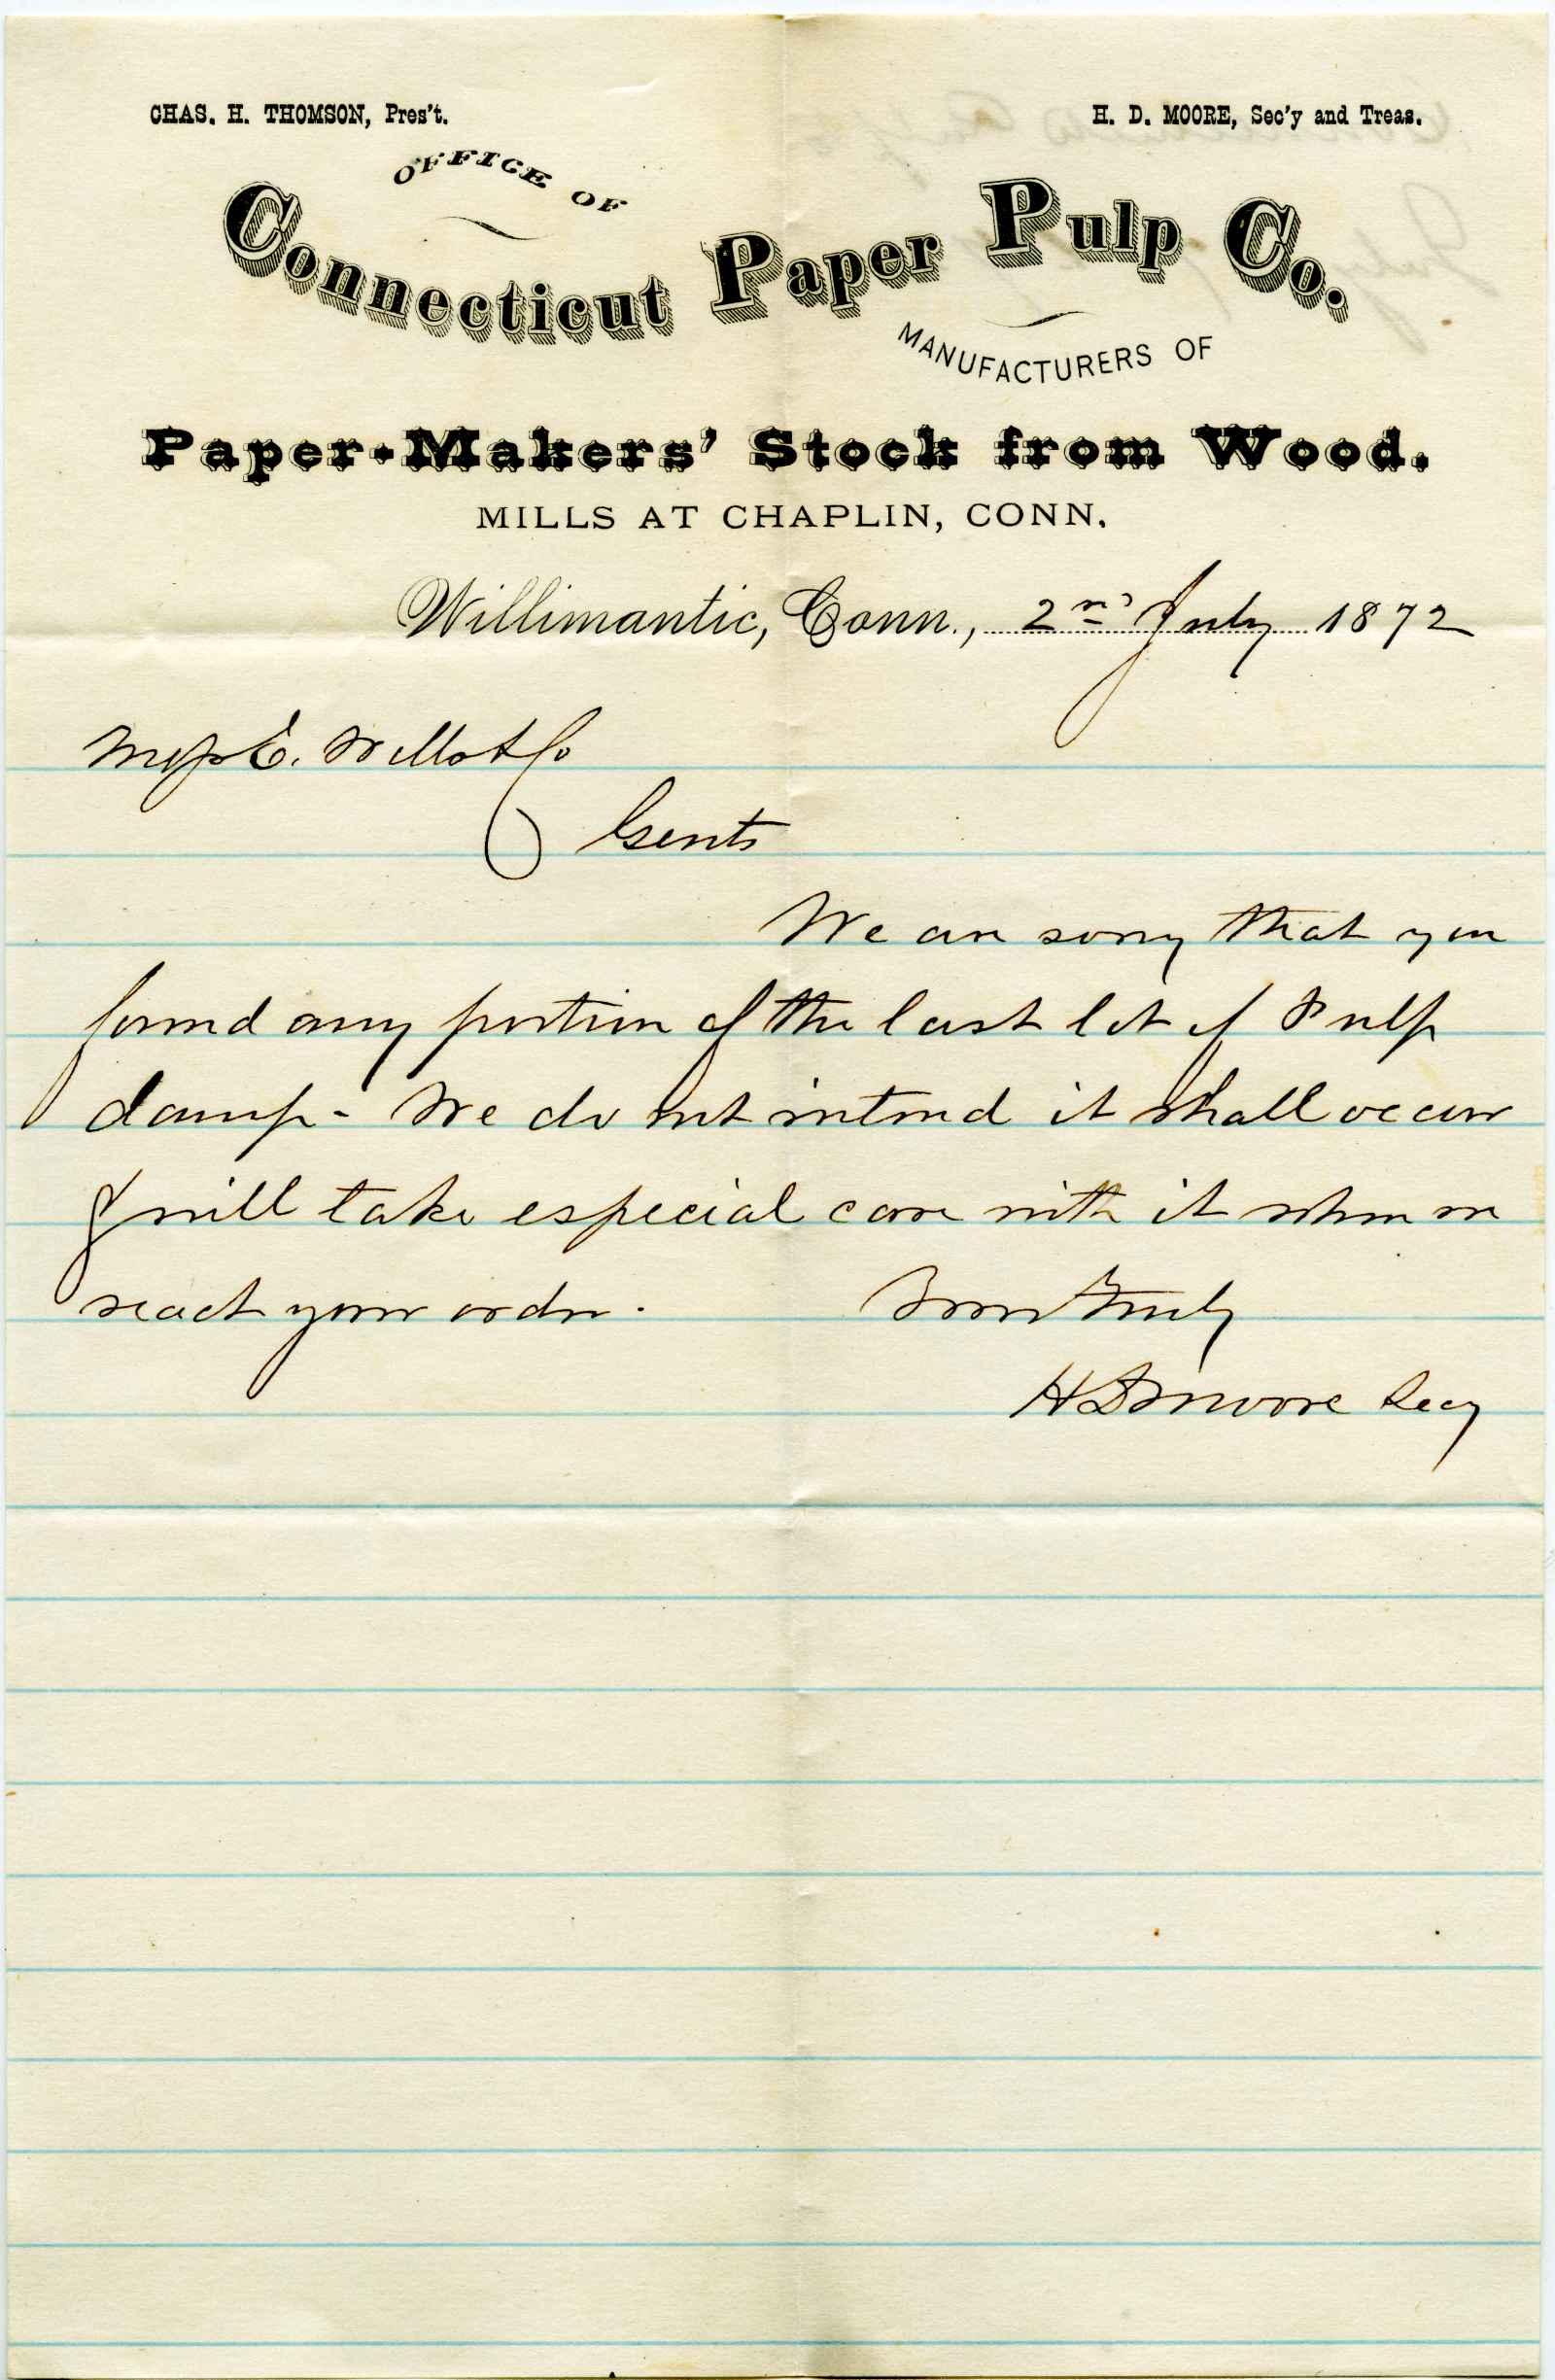 CHAS. H. THOMSON, Pres't.
H. D. MOORE, Sec'y and Treas.
OFFICE OF
Connecticut Paper Pulp Co.
MANUFACTURERS OF
Paper-Makers' Stock from Wood.
MILLS AT CHAPLIN, CONN.
Willimantic, Conn., 2nd July 1872
Mess E. Co
Gents
We are sorry that you
found any portion of the last lot of Pulp
damp - We do not intend it shall occur
& will take especial care with it when we
reach your order.
Yours Truly
H D Moore Secy